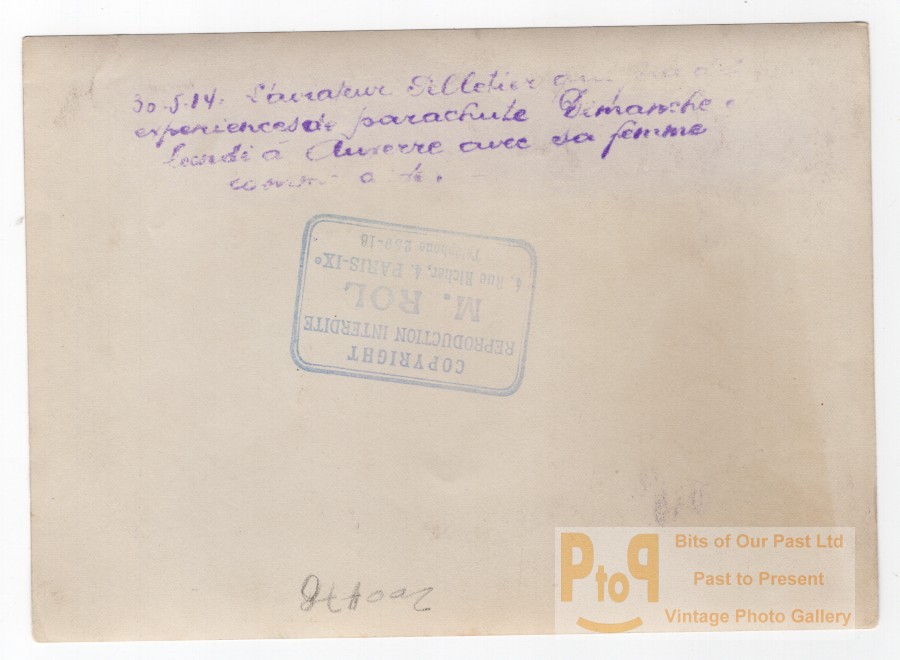 30-5-14. L'aviateur Pelletier qui
experiences de parachute Dimanche
Lundi à Auxerre avec sa femme
COPYRIGHT
REPRODUCTION INTERDITE
M. ROL
4, Rue Richer, 4, PARIS-IXe
Téléphone 289-18
Bits of Our Past Ltd
PtoP
Past to Present
Vintage Photo Gallery